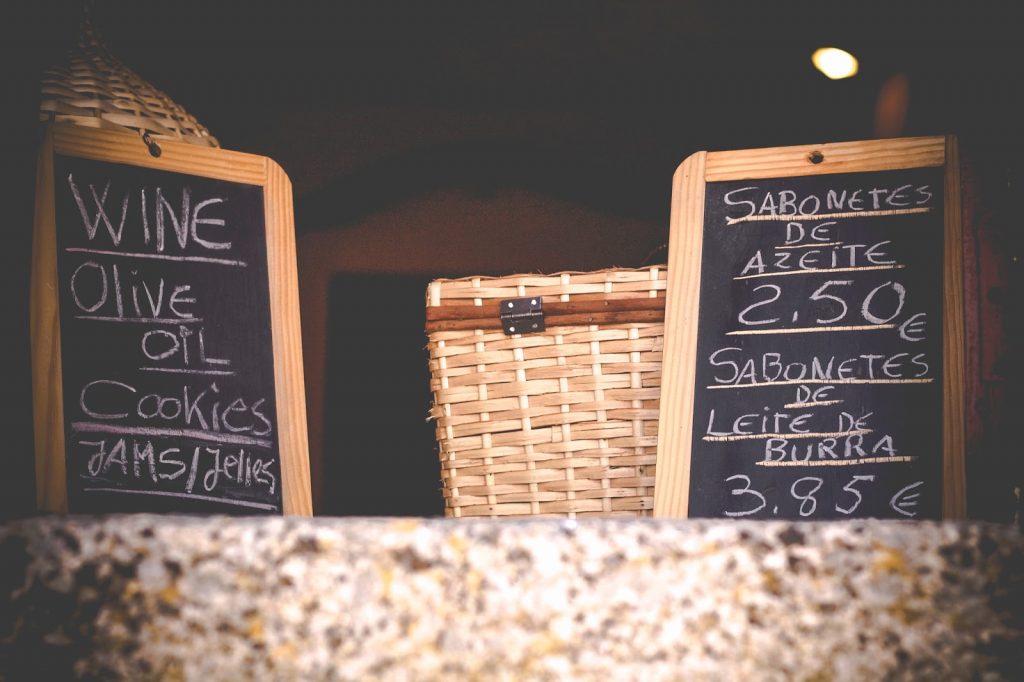 WINE
Olive
OIL
Cookies
JAMS/Jellies
SABONETES
DE
AZEITE
2.50 €
SABONETES
DE
LEITE DE
BURRA
3.85 €